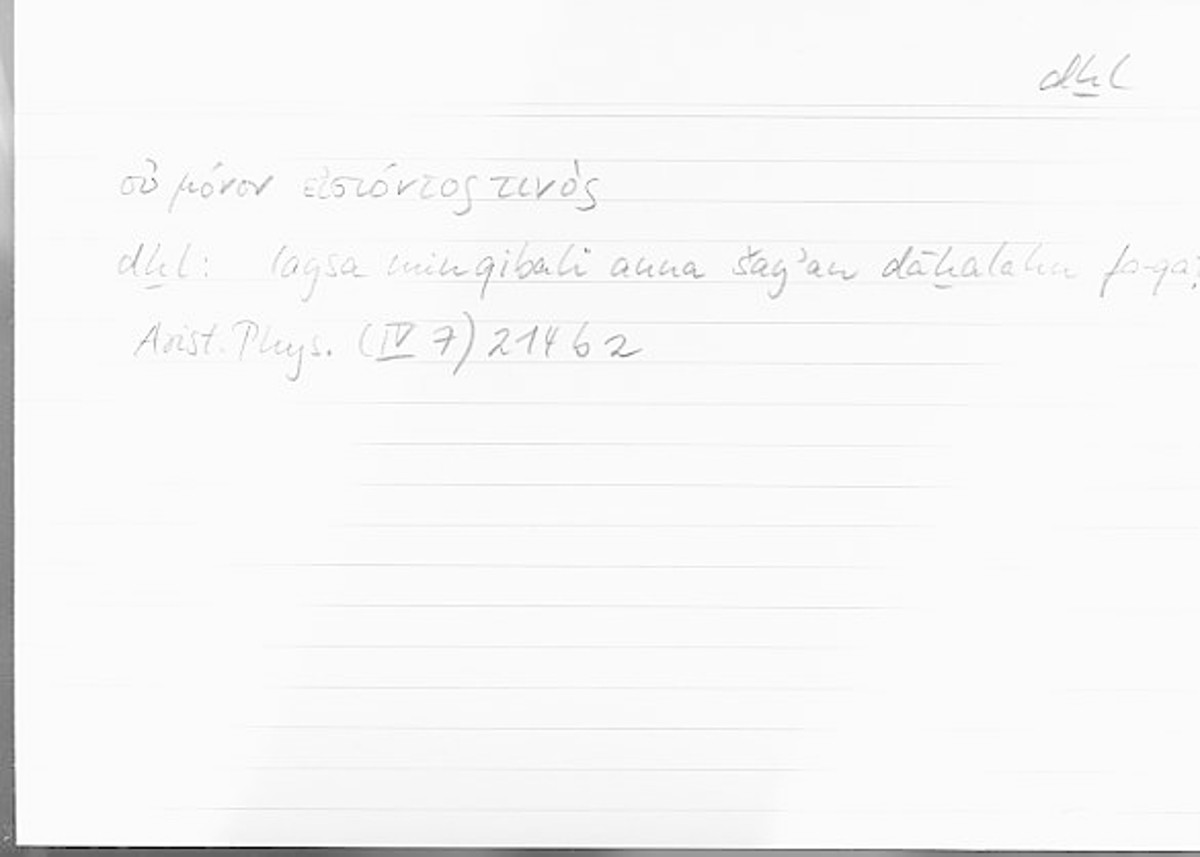 dḫl
οὐ μόνον εἰσιόντος τινὸς
dḫl: laysa min qibali anna šayʾan dāḫalahu fa-qaṭ
Arist. Phys. (IV 7) 214 b 2